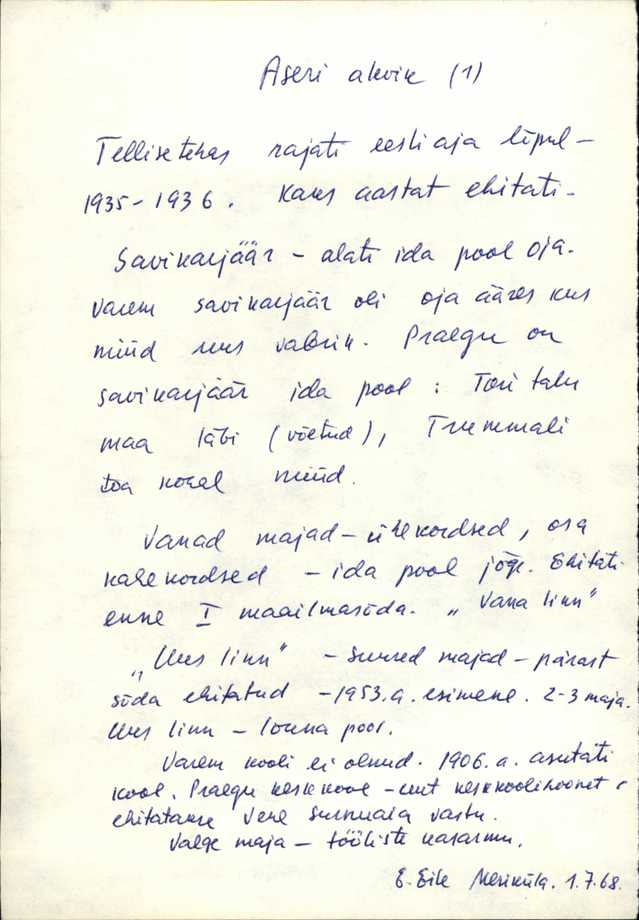 Aseri alevik (1)
Tellisetehas rajati eesti aja lõpul -
1935-1936. Kaks aastat ehitati.
Savikarjäär - alati ida pool oja.
Varem savikarjäär oli oja ääres kus
nüüd uus vabrik. Praegu on
savikarjäär ida pool: Tori talu
maa läbi (võetud), Trummali
toa kohal nüüd.
Vanad majad - ühekordsed, osa
kahekordsed - ida pool jõge. Ehitati
enne I maailmasõda. "Vana linn"
"Uus linn" - suured majad - pärast
sõda ehitatud - 1953.a. esimene. 2-3 maja.
Uus linn - lõuna pool.
Varem kooli ei olnud. 1906.a. asutati
kool. Praegu keskkool - uut keskkoolihoonet
ehitatakse Vene surnuaia vastu.
Valge maja - tööliste kasarmu.
E. Eile Meriküla. 1.7.68.